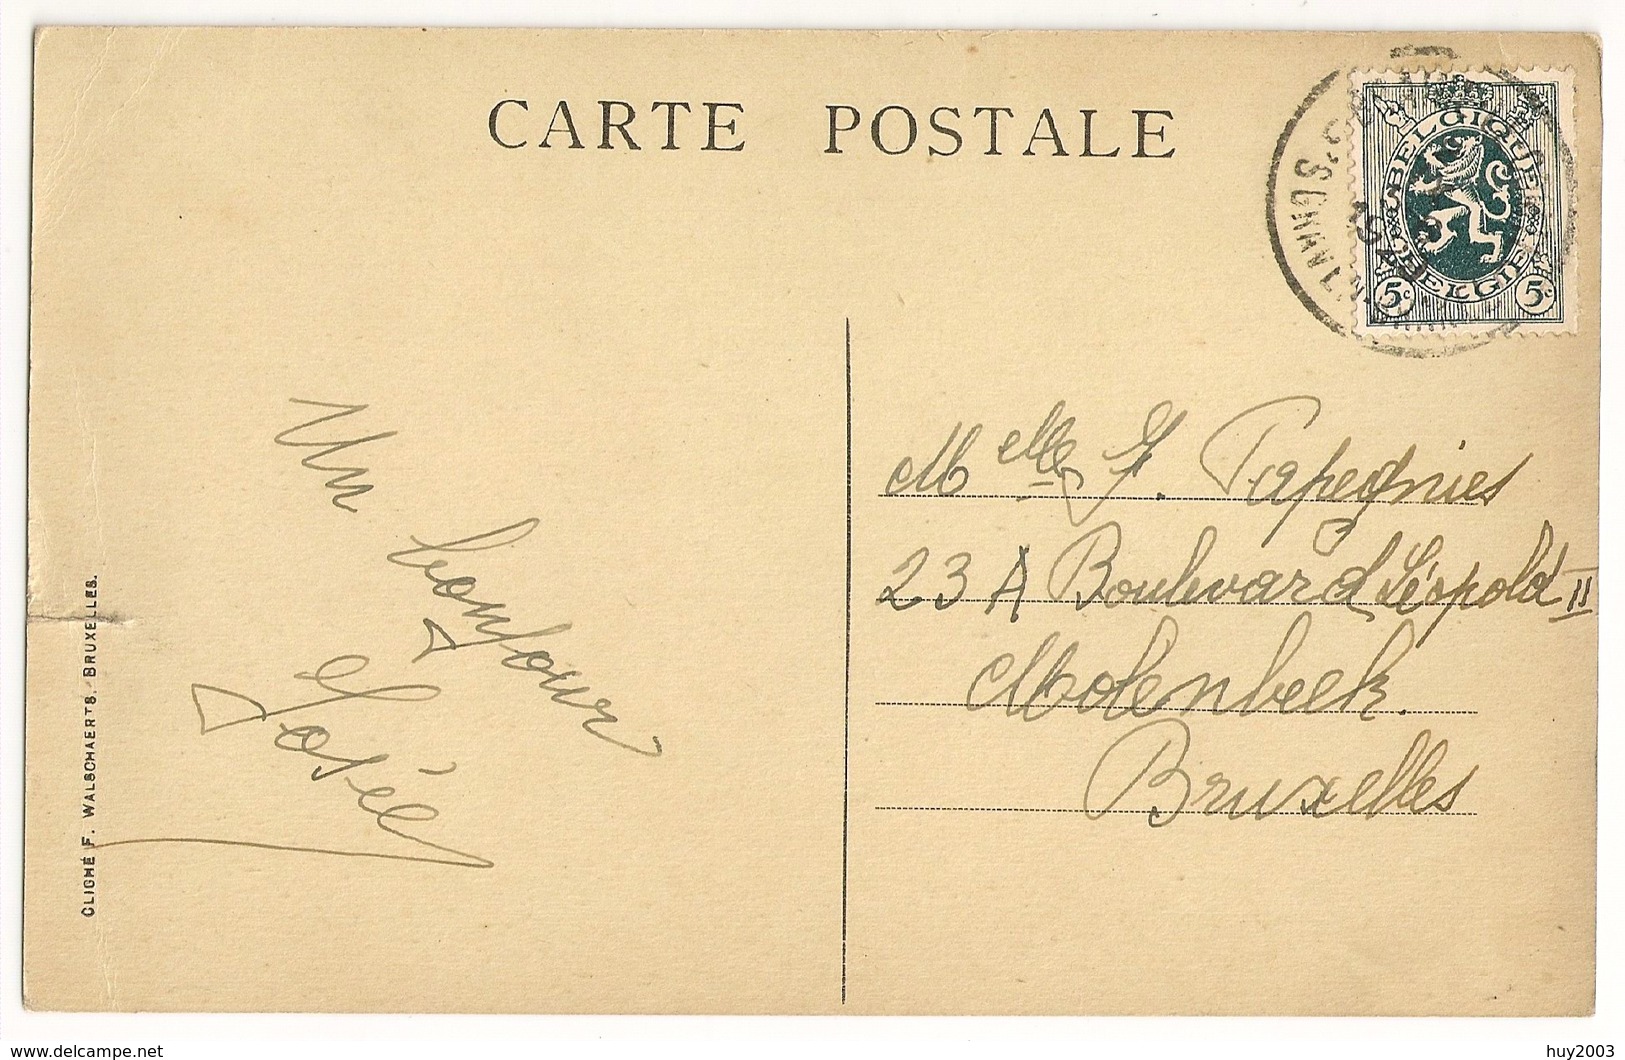 CARTE POSTALE
BELGIQUE
BELGIË
5c 5c
Un
bonjour
José
Melle J. Papegnies
23A Boulevard Léopold II
Molenbeek.
Bruxelles
CLICHÉ F. WALSCHAERTS. BRUXELLES.
www.delcampe.net
huy2003